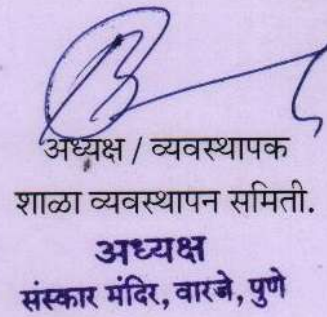 अध्यक्ष / व्यवस्थापक
शाळा व्यवस्थापन समिती.
अध्यक्ष
संस्कार मंदिर, वारजे, पुणे